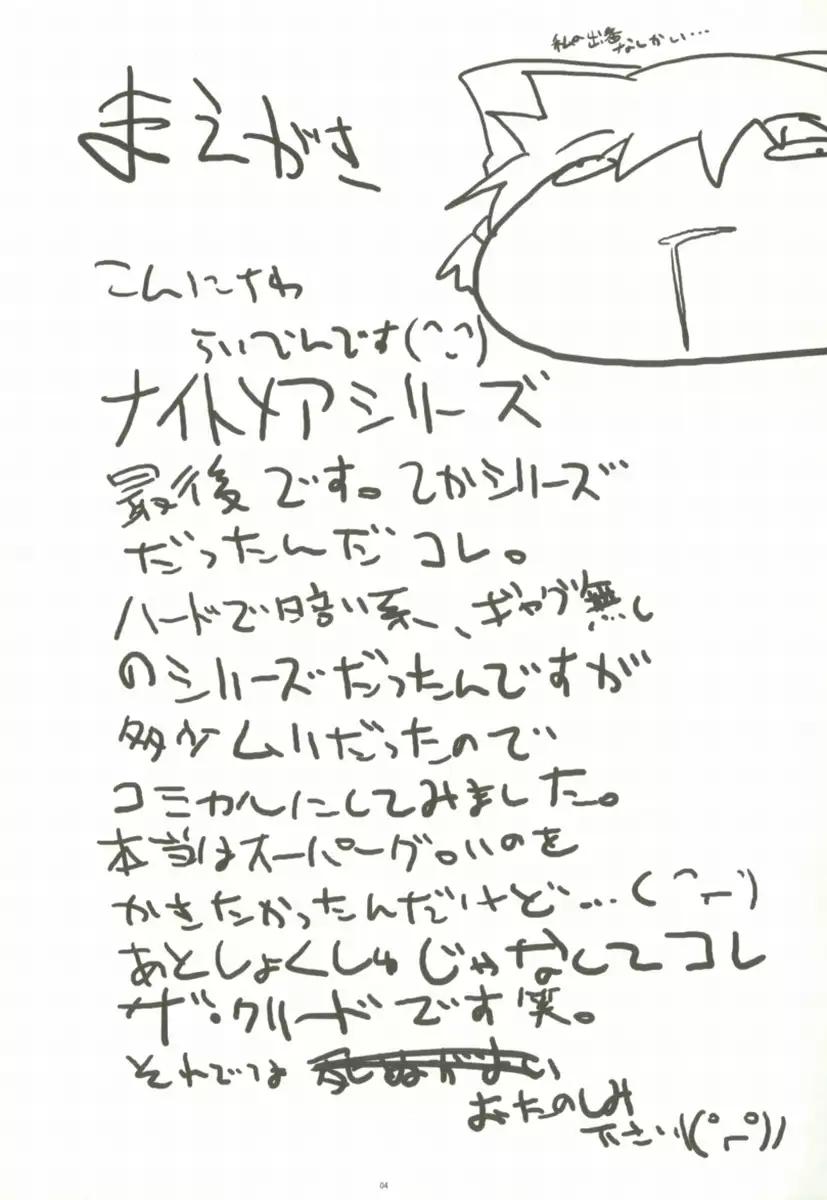 私の出番
なしかい…
まえがき
こんにちわ
らいでんです(^_^)
ナイトメアシリーズ
最後です。てかシリーズ
だったんだコレ。
ハードで暗い系、ギャグ無し
のシリーズだったんですが
多少ムリだったので
コミカルにしてみました。
本当はスーパーグロいのを
かきたかったんだけど…(
あとしょくしゅじゃなくてコレ
ザ・クリードです笑。
それでは 死ぬがよい
おたのしみ
下さい!
04